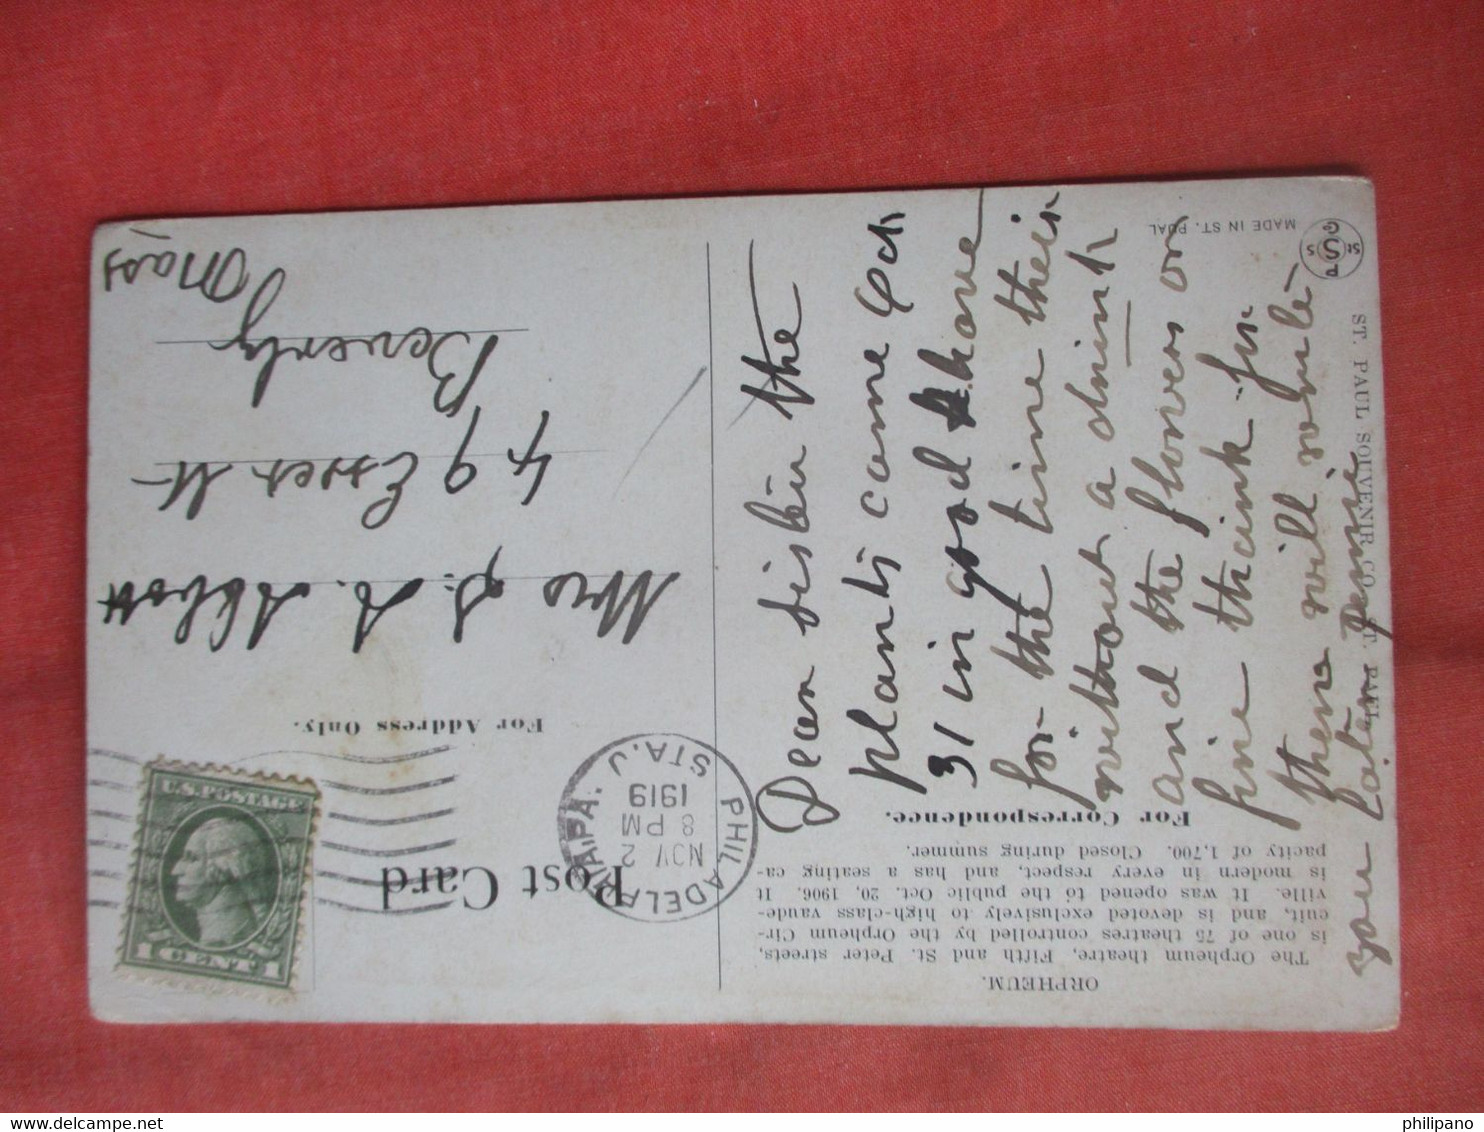 ORPHEUM.
The Orpheum theatre, Fifth and St. Peter streets,
is one of 75 theatres controlled by the Orpheum Cir-
cuit, and is devoted exclusively to high-class vaude-
ville. It was opened to the public Oct. 20, 1906. It
is modern in every respect, and has a seating ca-
pacity of 1,700. Closed during summer.
For Correspondence.
Dear sister the
plants came Oct
31 in good shape
for the time their
without a drink
and the flowers are
fine thank for
them will write
you later
ST. PAUL SOUVENIR CO., ST. PAUL
MADE IN ST. PUAL
Post Card
For Address Only.
PHILADELPHIA, PA.
STA. J
NOV 2
8 PM
1919
U.S. POSTAGE
1 CENT 1
Mrs S. A. Abbott
49 Essex St
Beverly
Mass
philipano
delcampe.net